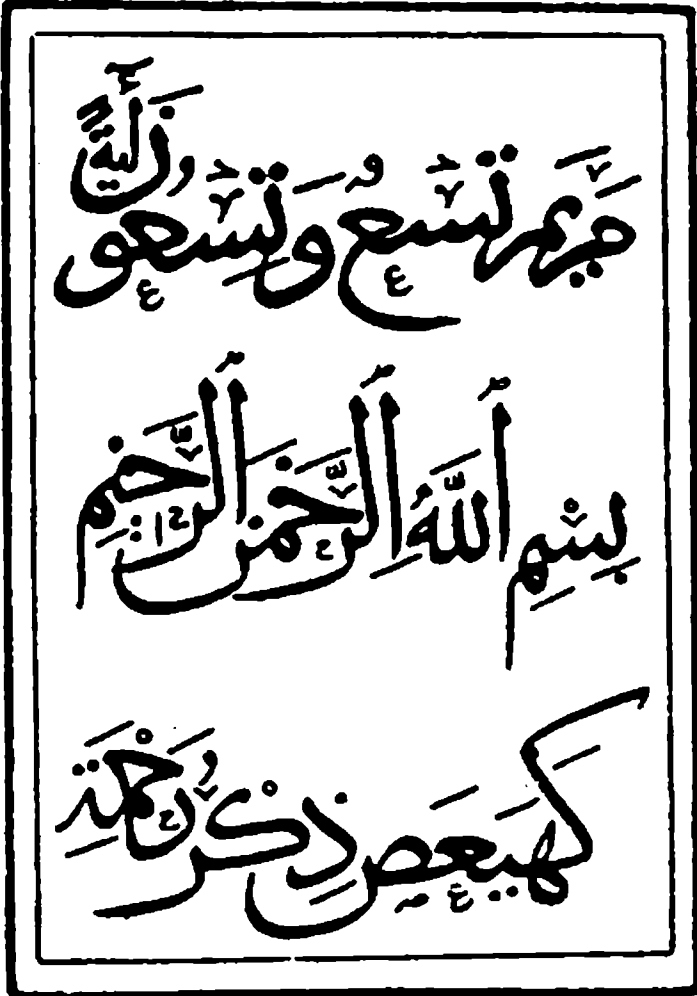 مَرْيَم تِسْعٌ وَتِسْعُونَ أٰيَةً
بِسْمِ اللّٰهِ الرَّحْمٰنِ الرَّحِيمِ
كهيعص ذِكْرُ رَحْمَةِ